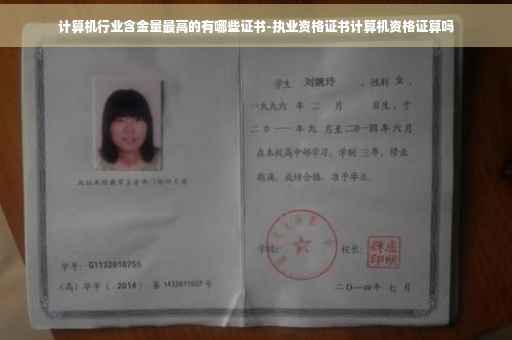 计算机行业含金量最高的有哪些证书-执业资格证书计算机资格证算吗
学生 刘婉玲 ，性别 女 ，
一九九六 年 二 月 日生，于
二〇一一年 九 月至 二〇一四年 六 月
在本校高中部学习，学制 三年，修业
期满，成绩合格，准予毕业。
学校： 校长：
二〇一四年 七 月
学号： G1132010755
（高）毕字（ 2014 ）第 1432011027 号